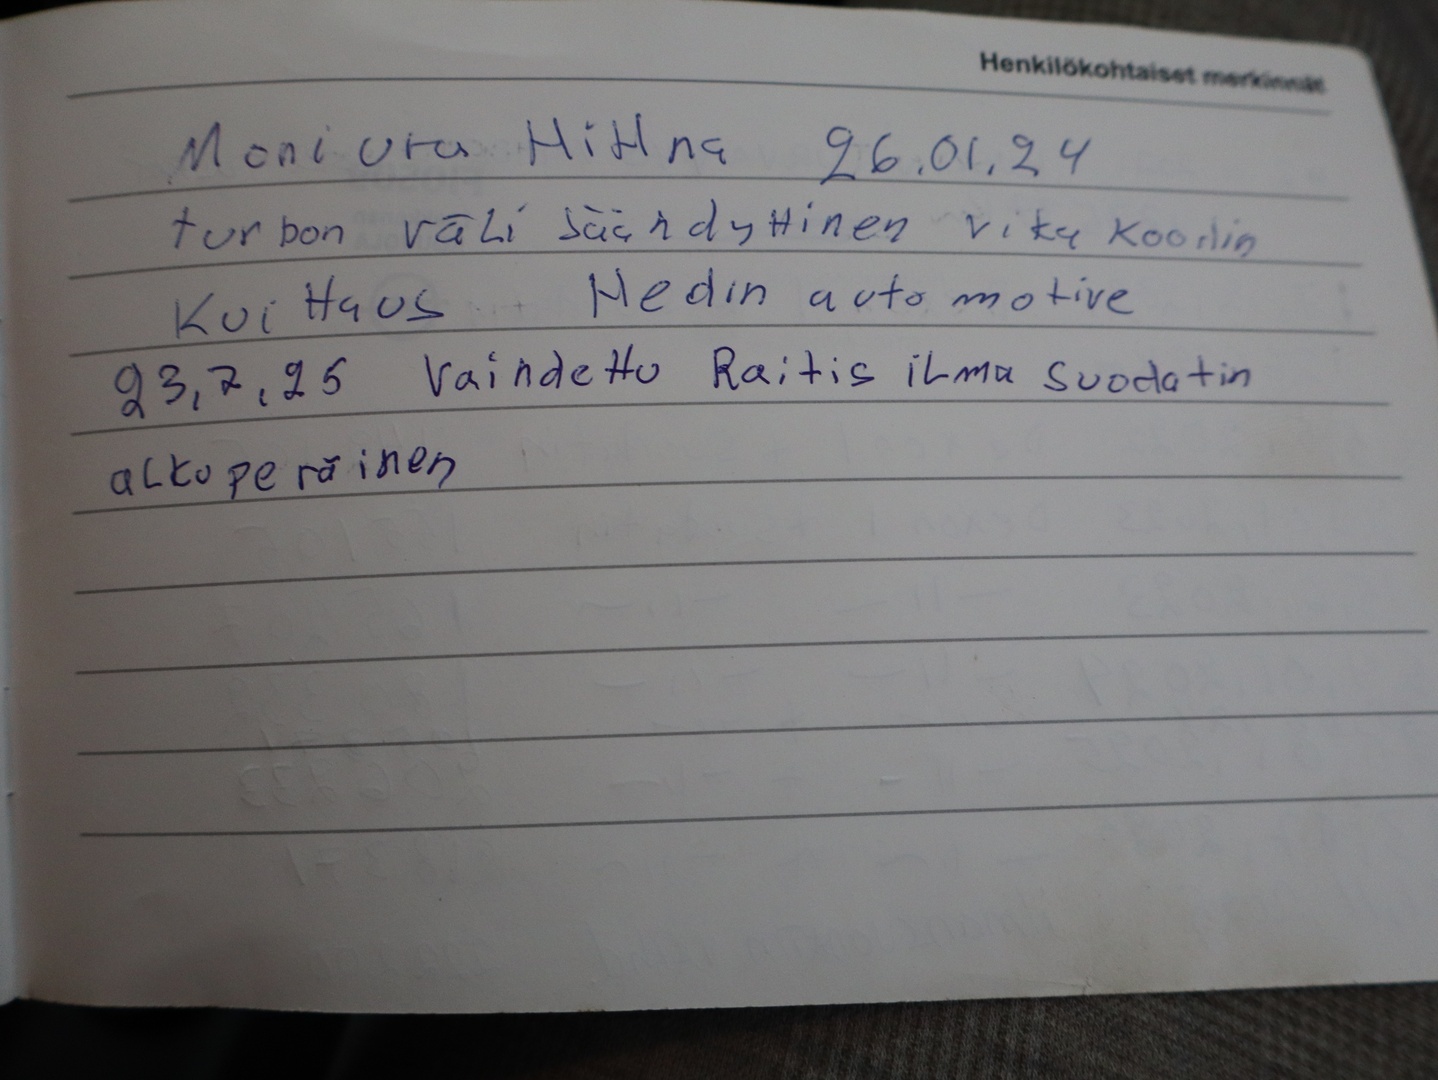 Henkilökohtaiset merkinnät
Moniura Hihna 26.01.24
turbon väli säändyttinen vika koodin
Kuittaus Hedin auto motive
23,7,25 Vaindettu Raitis ilma suodatin
alkuperäinen